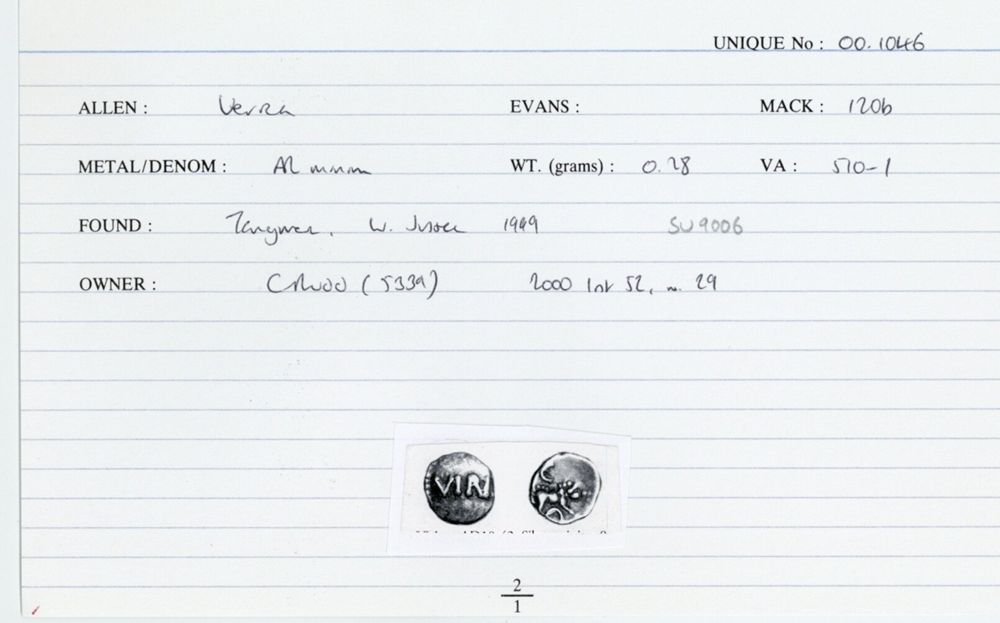 UNIQUE No : 00.1046
ALLEN : Verica EVANS : MACK : 120b
METAL/DENOM : AR minim WT. (grams) : 0.28 VA : 510-1
FOUND : Tangmere, W. Sussex 1999 SU9006
OWNER : CRudd (533a) 2000 list 52, no. 29
VIRI
2
1